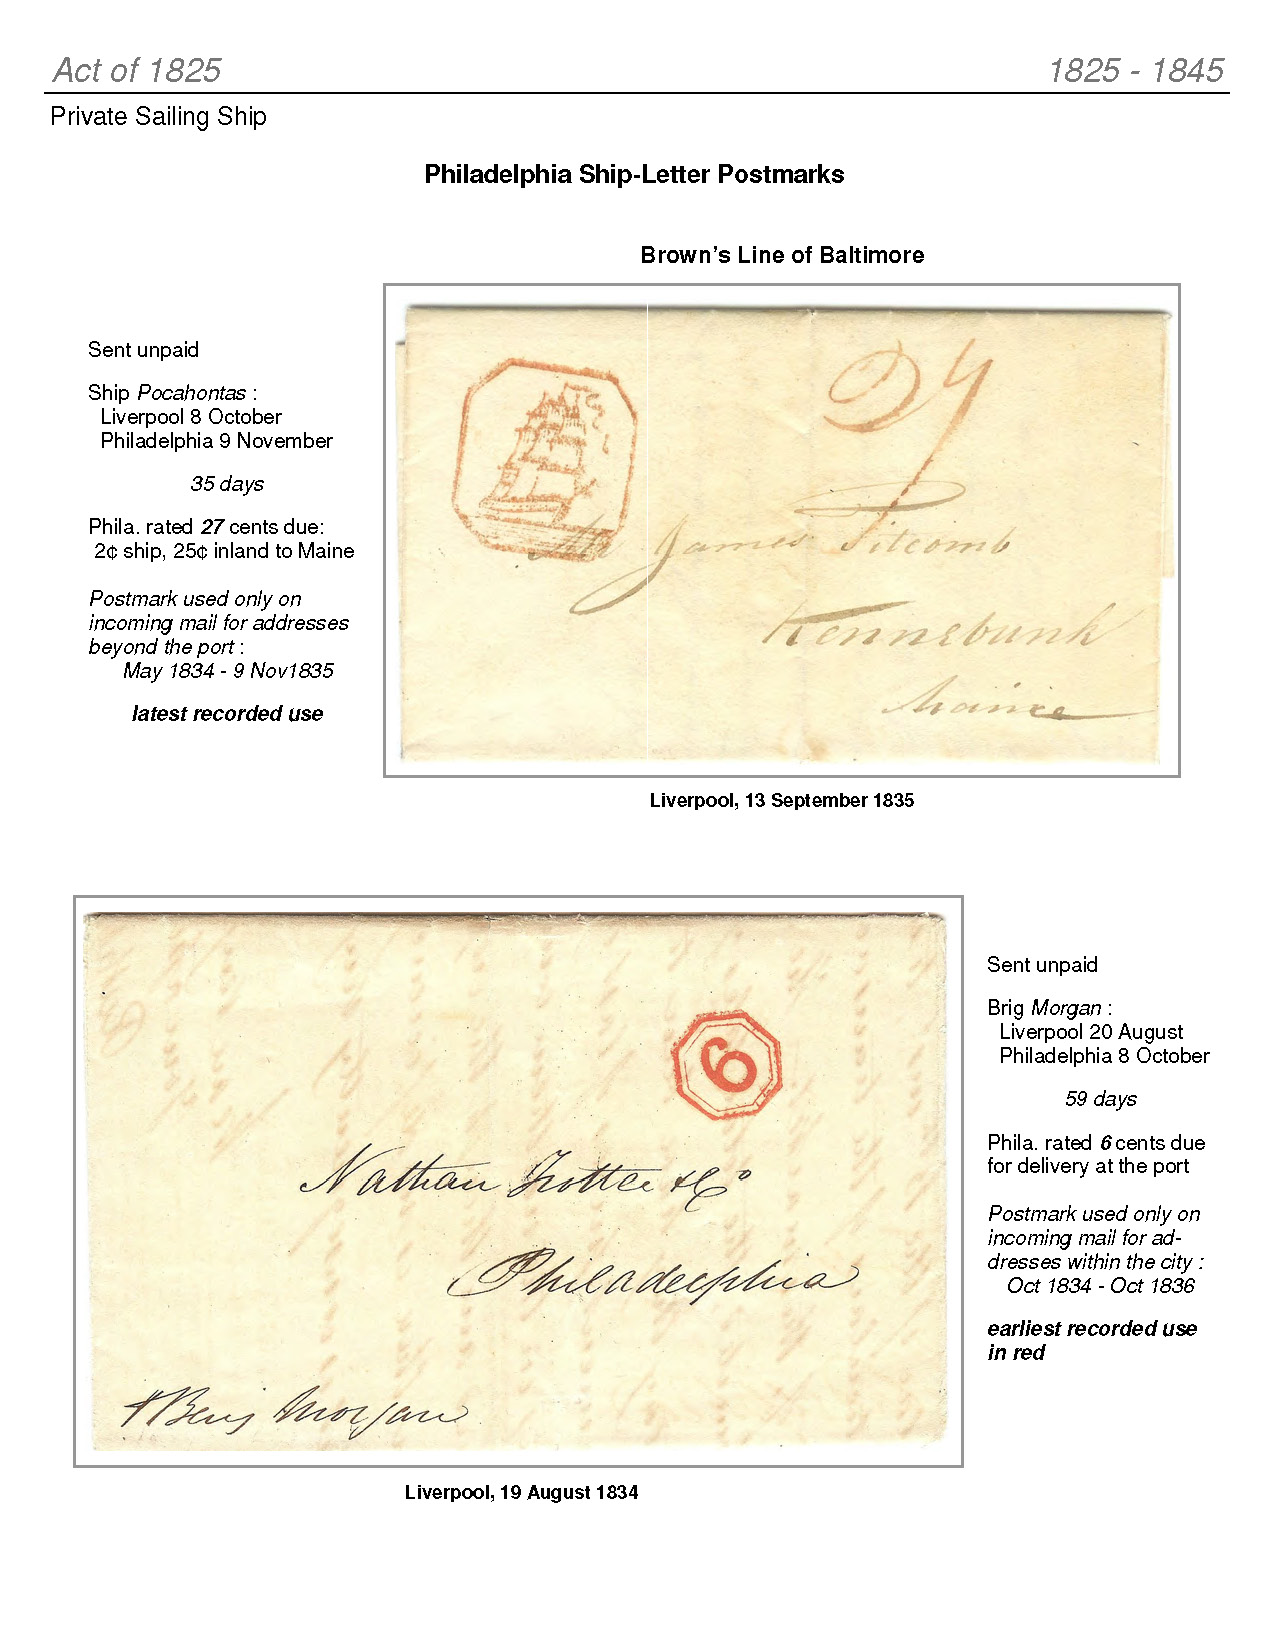 Act of 1825
1825 - 1845
Private Sailing Ship
Philadelphia Ship-Letter Postmarks
Brown's Line of Baltimore
Sent unpaid
Ship Pocahontas :
Liverpool 8 October
Philadelphia 9 November
35 days
Phila. rated 27 cents due:
2¢ ship, 25¢ inland to Maine
Postmark used only on
incoming mail for addresses
beyond the port :
May 1834 - 9 Nov1835
latest recorded use
27
Mr James Titcomb
Kennebunk
Maine
Liverpool, 13 September 1835
6
Nathan Trotter & Co
Philadelphia
Benj Morgan
Sent unpaid
Brig Morgan :
Liverpool 20 August
Philadelphia 8 October
59 days
Phila. rated 6 cents due
for delivery at the port
Postmark used only on
incoming mail for ad-
dresses within the city :
Oct 1834 - Oct 1836
earliest recorded use
in red
Liverpool, 19 August 1834